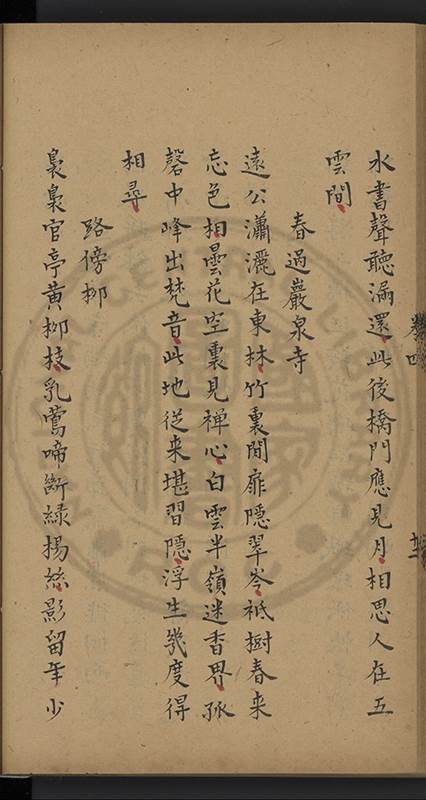 水書聲聽漏還此後橋門應見月相思人在五
雲間
春過巖泉寺
遠公瀟灑在東林竹裏閒扉隱翠岑祇樹春來
忘色相曇花空裏見禅心白雲半嶺迷香界孤
磬中峰出梵音此地從来堪習隱浮生幾度得
相尋
路傍柳
裊裊官亭黃柳枝乳鶯啼斷綠楊絲影留年少